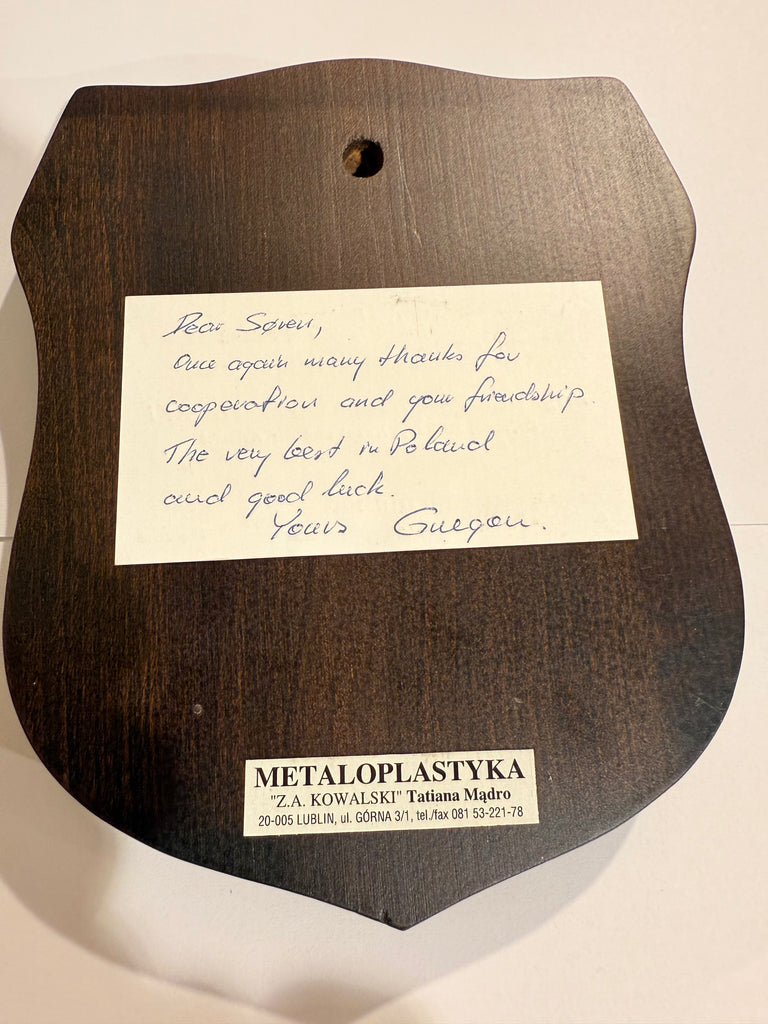 Dear Søren,
Once again many thanks for
cooperation and your friendship.
The very best in Poland
and good luck.
Yours
METALOPLASTYKA
"Z.A. KOWALSKI" Tatiana Mądro
20-005 LUBLIN, ul. GÓRNA 3/1, tel./fax 081 53-221-78